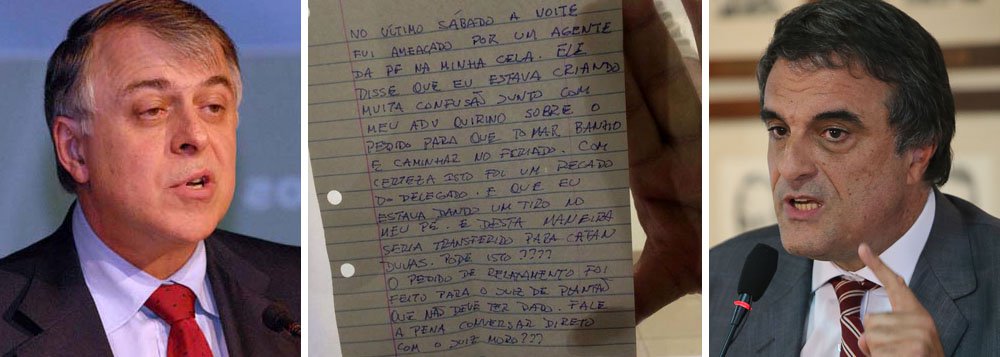 NO ÚLTIMO SÁBADO A NOITE
FUI AMEAÇADO POR UM AGENTE
DA PF NA MINHA CELA. ELI
DISSE QUE EU ESTAVA CRIANDO
MUITA CONFUSÃO JUNTO COM
MEU ADV QUIRINO SOBRE O
PEDIDO PARA QUE TOMAR BANHO
E CAMINHAR NO FERIADO. COM
CERTEZA ISTO FOI UM RECADO
DO DELEGADO. E QUE EU
ESTAVA DANDO UM TIRO NO
MEU PÉ. E DESTA MANEIRA
SERIA TRANSFERIDO PARA CATAN
DUVAS. PODE ISTO????
O PEDIDO DE RELAXAMENTO FOI
FEITO PARA O JUIZ DE PLANTÃO
QUE NÃO DEVE TER DADO. FALE
A PENA CONVERSAR DIRETO
COM O JUIZ MORO???